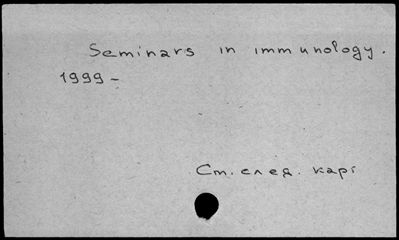 Seminars in immunology.
1999-
Ст. след. карт